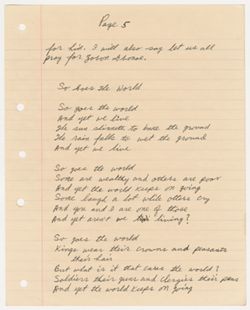 Page 5
for God. I will also say let us all
pray for
So Goes the World
So goes the world
And yet we live
The sun climate to bake the ground
The rain falls to wet the ground
And yet we live
So goes the world
Some are wealthy and others are poor
And yet the world keeps on going
Some laugh a lot while others cry
And you and I are one of those
And yet aren't we living?
So goes the world
Kings wear their crowns and peasants
their hair
But what is it that cares the world?
Soldiers their guns and clergies their pens
And yet the world keeps on going